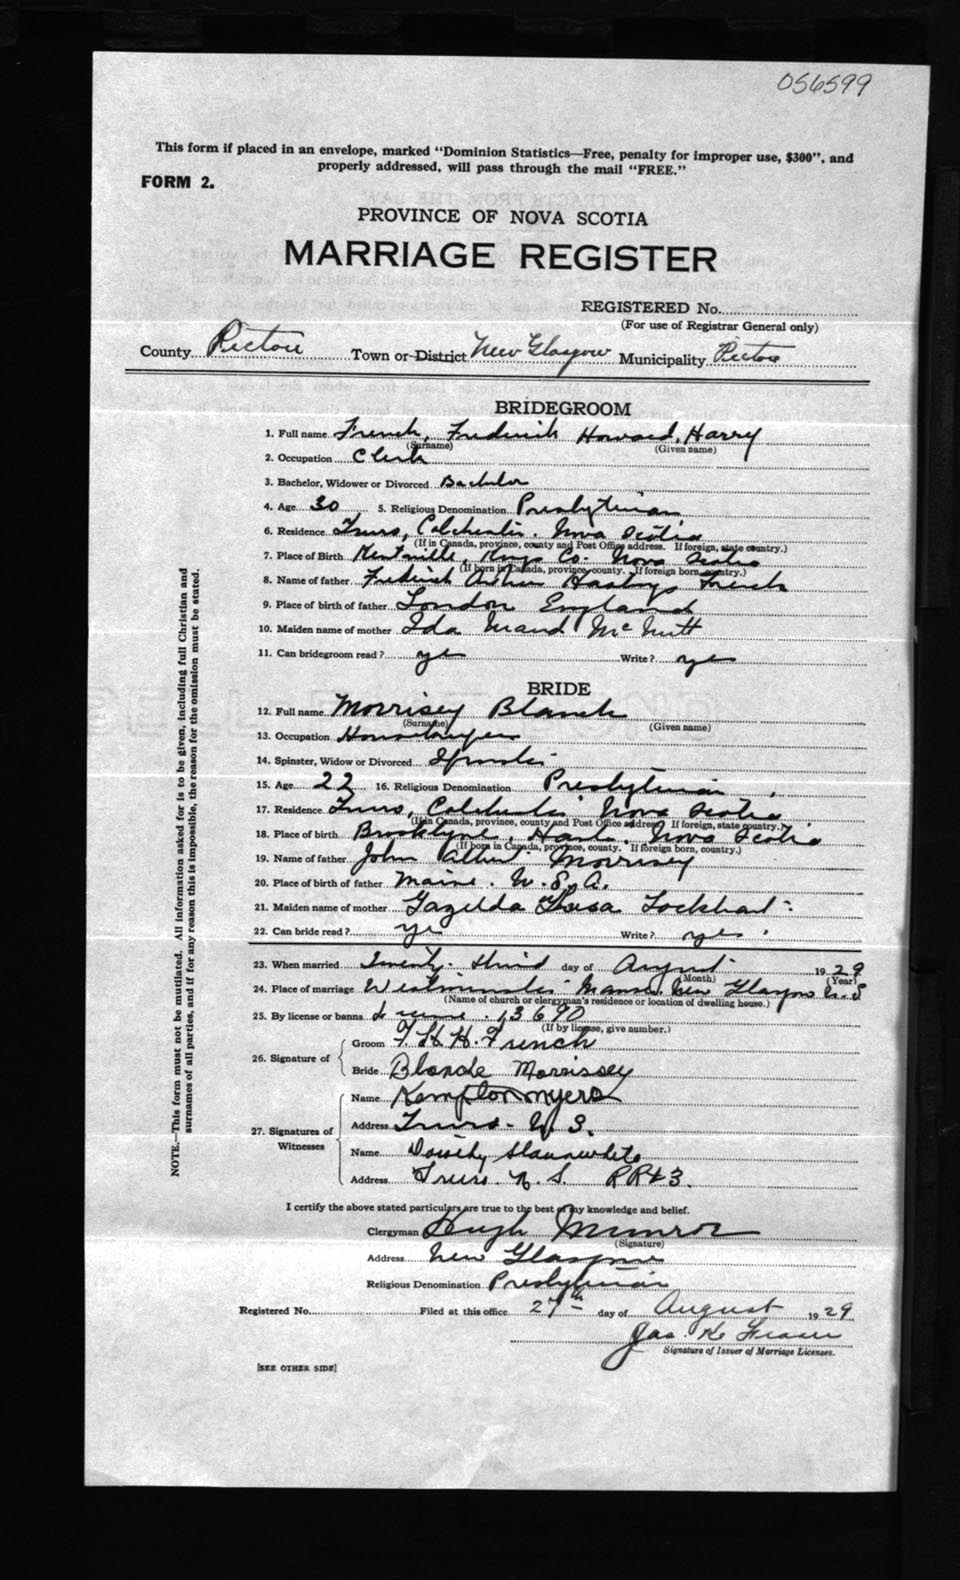 056599
This form if placed in an envelope, marked "Dominion Statistics—Free, penalty for improper use, $300", and
properly addressed, will pass through the mail "FREE."
FORM 2.
PROVINCE OF NOVA SCOTIA
MARRIAGE REGISTER
REGISTERED No.
(For use of Registrar General only)
County Pictou Town or District New Glasgow Municipality Pictou
BRIDEGROOM
1. Full name French, Frederick Howard, Harry
(Surname) (Given name)
2. Occupation Clerk
3. Bachelor, Widower or Divorced Bachelor
4. Age 30 5. Religious Denomination Presbyterian
6. Residence Truro, Colchester, Nova Scotia
(If in Canada, province, county and Post Office address. If foreign, state country.)
7. Place of Birth Kentville, Kings Co. Nova Scotia
(If born in Canada, province, county. If foreign born, country.)
8. Name of father Frederick Arthur French
9. Place of birth of father London England
10. Maiden name of mother Ida Maud McNutt
11. Can bridegroom read? yes Write? yes
BRIDE
12. Full name Morrisey Blanch
(Surname) (Given name)
13. Occupation Housekeeper
14. Spinster, Widow or Divorced Spinster
15. Age 22 16. Religious Denomination Presbyterian
17. Residence Truro, Colchester Nova Scotia
(If in Canada, province, county and Post Office address. If foreign, state country.)
18. Place of birth Brooklyne, Hants, Nova Scotia
(If born in Canada, province, county. If foreign born, country.)
19. Name of father John Albert Morrisey
20. Place of birth of father Maine. U.S.A.
21. Maiden name of mother Lockhart
22. Can bride read? yes Write? yes
23. When married Twenty-third day of August 1929
(Month) (Year)
24. Place of marriage Westminster Manse. New Glasgow N.S
(Name of church or clergyman's residence or location of dwelling house.)
25. By license or banns License. 13690
(If by license, give number.)
26. Signature of
Groom F. H. H. French
Bride Blanche Morrissey
27. Signatures of Witnesses
Name Kempton Myers
Address Truro. N. S.
Name Dorothy Slaunwhite
Address Truro. N. S. RR#3.
I certify the above stated particulars are true to the best of my knowledge and belief.
Clergyman Hugh Munroe
(Signature)
Address New Glasgow
Religious Denomination Presbyterian
Registered No. Filed at this office 27th day of August 1929
Jas. K. Fraser
Signature of Issuer of Marriage Licenses.
[SEE OTHER SIDE]
NOTE.—This form must not be mutilated. All information asked for is to be given, including full Christian and
surnames of all parties, and if for any reason this is impossible, the reason for the omission must be stated.